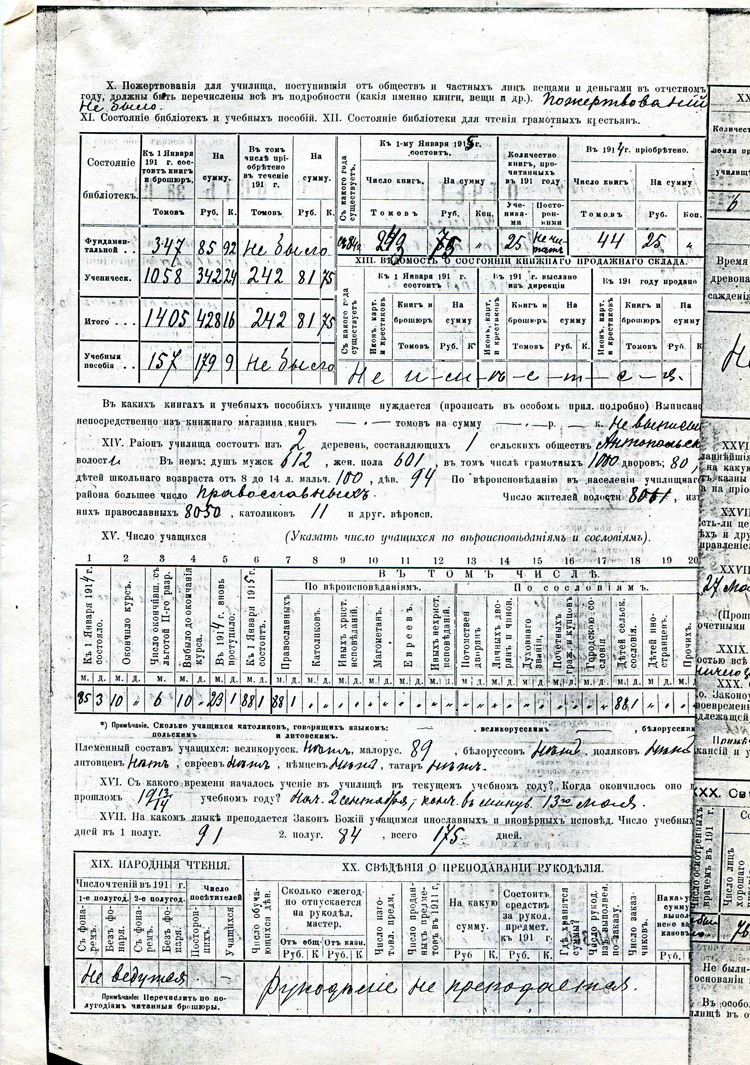 X. Пожертвованія для училища, поступившія отъ обществъ и частныхъ лицъ вещами и деньгами въ отчетномъ
году, должны быть перечислены всѣ въ подробности (какія именно книги, вещи и др.). Пожертвованій
не было.
XI. Состояніе библіотекъ и учебныхъ пособій. XII. Состояніе библіотеки для чтенія грамотныхъ крестьянъ.
Состояніе библіотекъ.
Къ 1 Января 191 г. состоитъ книгъ и брошюръ.
На сумму.
Въ томъ числѣ пріобрѣтено въ теченіе 191 г.
На сумму.
Томовъ Руб. К. Томовъ Руб. К.
Фундаментальной . . 347 85 92 Не было
Ученическ. 1058 342 24 242 81 75
Итого . . . 1405 428 16 242 81 75
Учебныя пособія . . 157 179 9 Не было
Съ какого года существуетъ.
Къ 1-му Января 1915 г. состоитъ.
Количество книгъ, прочитанныхъ въ 191 году.
Въ 1914 г. пріобрѣтено.
Число книгъ. На сумму Учениками Посторонними Число книгъ На сумму
Томовъ Руб. Коп. Томовъ Руб. Коп.
75 „ 25 44 25 „
XIII. ВѢДОМОСТЬ О СОСТОЯНІИ КНИЖНАГО ПРОДАЖНАГО СКЛАДА.
Съ какого года существуетъ
Къ 1 Января 191 г. состоитъ
Въ 191 г. выслано изъ дирекціи
Въ 191 году продано
Иконъ, карт. и крестиковъ Книгъ и брошюръ На сумму
Томовъ Руб. К.
Не имѣется.
Въ какихъ книгахъ и учебныхъ пособіяхъ училище нуждается (прописать въ особомъ прил. подробно) Выписано
непосредственно изъ книжнаго магазина книгъ — томовъ на сумму — р. — к. Не выписы
XIV. Раіонъ училища состоитъ изъ 2 деревень, составляющихъ 1 сельскихъ обществъ Антопольск
волости Въ немъ: душъ мужск 612, жен. пола 601, въ томъ числѣ грамотныхъ 1000 дворовъ; 80,
дѣтей школьнаго возраста отъ 8 до 14 л. мальч. 100, дѣв. 94 По вѣроисповѣданію въ населеніи училищнаго
района большее число православныхъ. Число жителей волости 8061, изъ
нихъ православныхъ 8050, католиковъ 11 и друг. вѣроисп.
XV. Число учащихся (Указать число учащихся по вѣроисповѣданіямъ и сословіямъ).
1 2 3 4 5 6 7 8 9 10 11 12 13 14 15 16 17 18 19 20
ВЪ ТОМЪ ЧИСЛѢ.
По вѣроисповѣданіямъ. По сословіямъ.
Къ 1 Января 1914 г. состояло.
Окончило курсъ.
Число окончивш. съ льготой II-го разр.
Выбыло до окончанія курса.
Въ 1914 г. вновь поступило.
Къ 1 Января 1915 г. состоитъ.
Православныхъ
Католиковъ.
Иныхъ христ. исповѣданій.
Магометан.
Евреевъ.
Иныхъ нехрист. исповѣданій.
Потомствен дворянъ
Личныхъ дворян и чинов.
Духовнаго званія.
Почетныхъ граж. и купцовъ
Городскою сословія
Дѣтей сельск. сословія.
Дѣтей иностранцевъ.
Прочихъ.
м. д. м. д. м. д. м. д. м. д. м. д. м. д.
85 3 10 „ 6 10 „ 23 1 88 1 88 1 88 1
*) Примѣчаніе. Сколько учащихся католиковъ, говорящихъ языкомъ: — , великорусскимъ — , бѣлорусски
польскимъ и литовскимъ.
Племенный составъ учащихся: великорусск. нѣтъ, малорус. 89, бѣлоруссовъ нѣтъ, поляковъ нѣтъ
литовцевъ нѣтъ, евреевъ нѣтъ, нѣмцевъ нѣтъ, татаръ нѣтъ.
XVI. Съ какого времени началось ученіе въ училищѣ въ текущемъ учебномъ году? Когда окончилось оно в
прошломъ 1913/14 учебномъ году? Нач. 2 сентября, конч. въ минув. 13го мая.
XVII. На какомъ языкѣ преподается Законъ Божій учащимся инославныхъ и иновѣрныхъ исповѣд. Число учебных
дней въ 1 полуг. 91 2. полуг. 84, всего 175 дней.
XIX. НАРОДНЫЯ ЧТЕНІЯ.
Число чтеній въ 191 г. Число посѣтителей
1-е полугод. 2-е полугод.
Съ фонаремъ. Безъ фонаря. Съ фонаремъ. Безъ фонаря. Постороннихъ. Учащихся
Не ведутся —
Примѣчаніе: Перечислить по полугодіямъ читанныя брошюры.
XX. СВѢДѢНІЯ О ПРЕПОДАВАНІИ РУКОДѢЛІЯ.
Число обучающихся дѣв.
Сколько ежегодно отпускается на рукодѣл. мастер.
Отъ общ. Отъ казн.
Число изготовл. предм.
Число проданныхъ предметовъ въ 191 г.
На какую сумму.
Состоитъ средствъ за рукод. предмет. къ 191 г.
Гдѣ хранятся суммы?
Число рукод. изд. выполнен. по заказу.
Число заказчиковъ.
Руб. К
Рукодѣліе не преподается.
XX
Количест
училищѣ
6
Время
древона
сажденія
Не
XXVI
XXVII
27 Мая
XXIX.
XXX.
XXX. Свѣ
Число осмотрѣнныхъ врачемъ въ 191 г.
Число лицъ хорошаго
76
Не были
основаніи
Въ особо